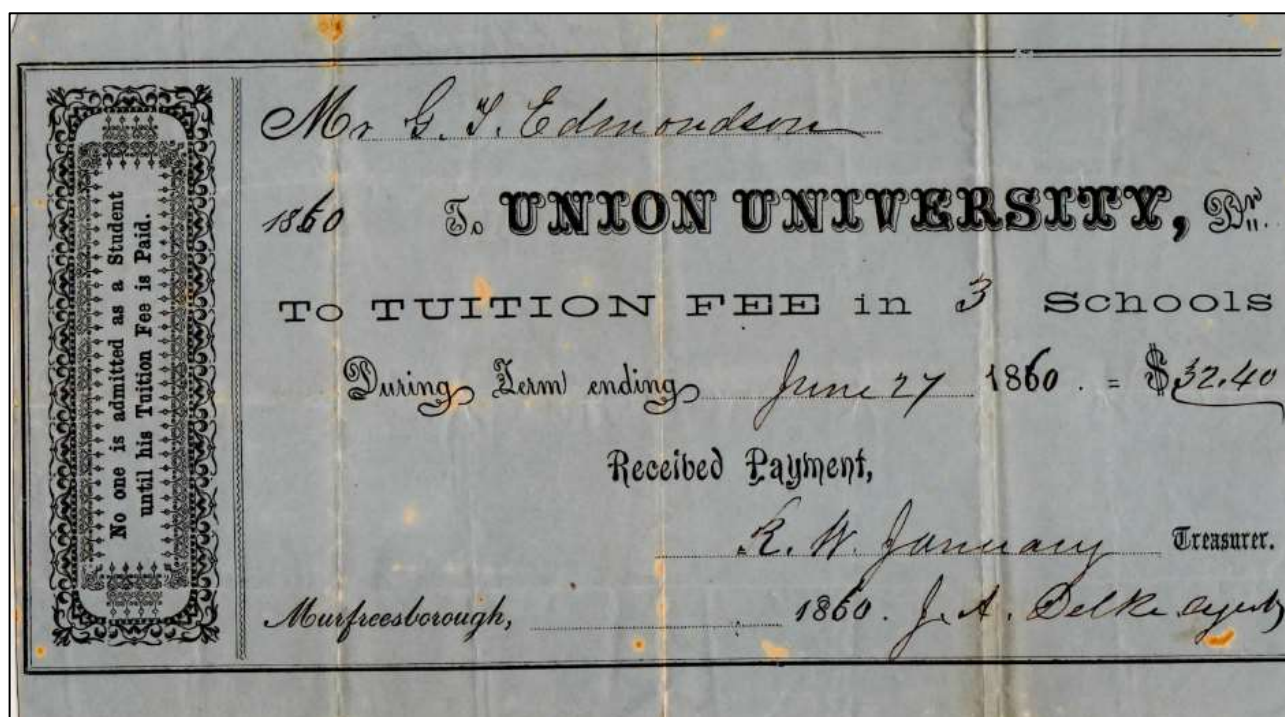 No one is admitted as a Student
until his Tuition Fee is Paid.
Mr G. T. Edmondson
1860 To UNION UNIVERSITY, Dr.
To TUITION FEE in 3 Schools
During Term ending June 27 1860. = $32.40
Received Payment,
R. W. January Treasurer.
Murfreesborough, 1860. J. A. Delke agent